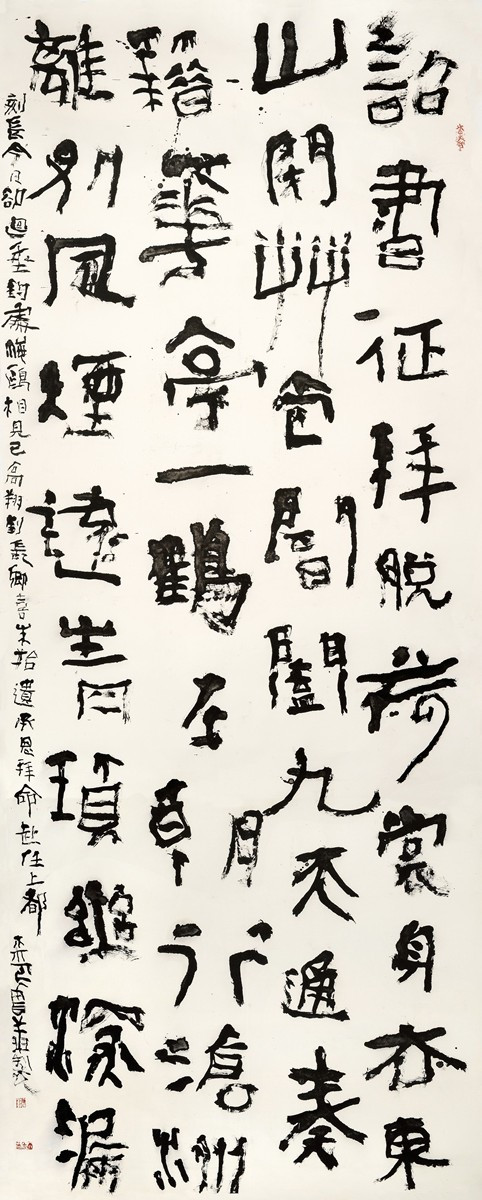 詔書征拜脱荷裳身去東
山閉艸堂閶闔九天通奏
籍華亭一鶴在朝行滄洲
離别風煙遠青瑣幽深漏
刻長今日卻迴垂釣處海鷗相見已高翔劉長卿喜朱拾遺承恩拜命赴任上都